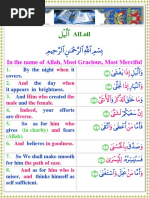 الَّيل All.ail
بِسْمِ اللَّهِ الرَّحْمَٰنِ الرَّحِيمِ
In the name of Allah, Most Gracious, Most Merciful
1. By the night when it covers, وَالَّيْلِ إِذَا يَغْشَىٰ
2. And the day when it appears in brightness. وَالنَّهَارِ إِذَا تَجَلَّىٰ
3. And Him who created the male and the female. وَمَا خَلَقَ الذَّكَرَ وَالْأُنثَىٰ
4. Indeed, your efforts are diverse. إِنَّ سَعْيَكُمْ لَشَتَّىٰ
5. So as for him who gives (in charity) and fears (Allah). فَأَمَّا مَنْ أَعْطَىٰ وَاتَّقَىٰ
6. And believes in goodness. وَصَدَّقَ بِالْحُسْنَىٰ
7. So We shall make smooth for him the path of ease. فَسَنُيَسِّرُهُ لِلْيُسْرَىٰ
8. And as for him who is miser, and thinks himself as self sufficient. وَأَمَّا مَن بَخِلَ وَاسْتَغْنَىٰ